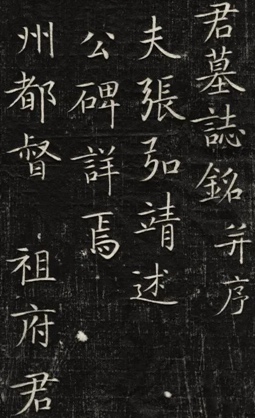 君墓誌銘并序
夫張弘靖述
公碑詳焉
州都督 祖府君